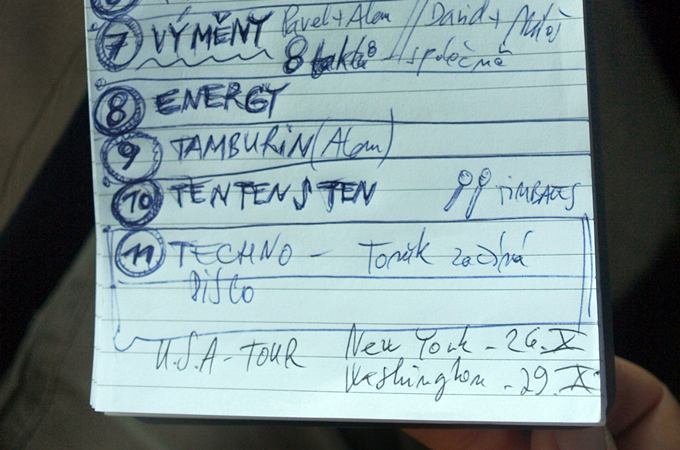 7 VÝMĚNY Pavel + Alan // David + Miloš
8 taktů 8 - společně
8 ENERGY
9 TAMBURIN (Alan)
10 TEN TEN S TEN TIMBALES
11 TECHNO - Tomík začíná
DISCO
U.S.A - TOUR New York - 26. X
Washington - 29. X